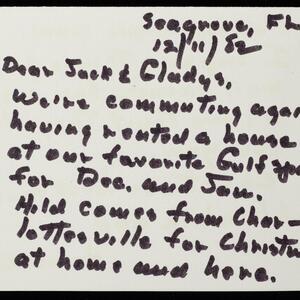 Seagrove, FL
12/11/82
Dear Jack & Gladys,
We're commuting again
having rented a house
at our favorite Gulf spot
for Dec. and Jan.
Hild comes from Char-
lottesville for Christm
at home and here.